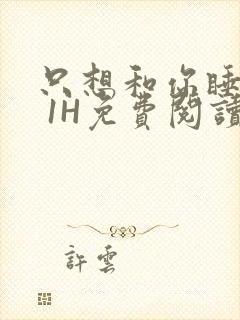 只想和你睡
1H免費閱讀
許雲